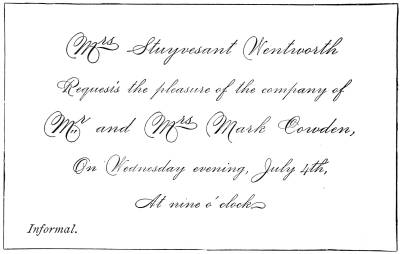 Mrs Stuyvesant Wentworth
Requests the pleasure of the company of
Mr and Mrs Mark Cowden,
On Wednesday evening, July 4th,
At nine o'clock
Informal.